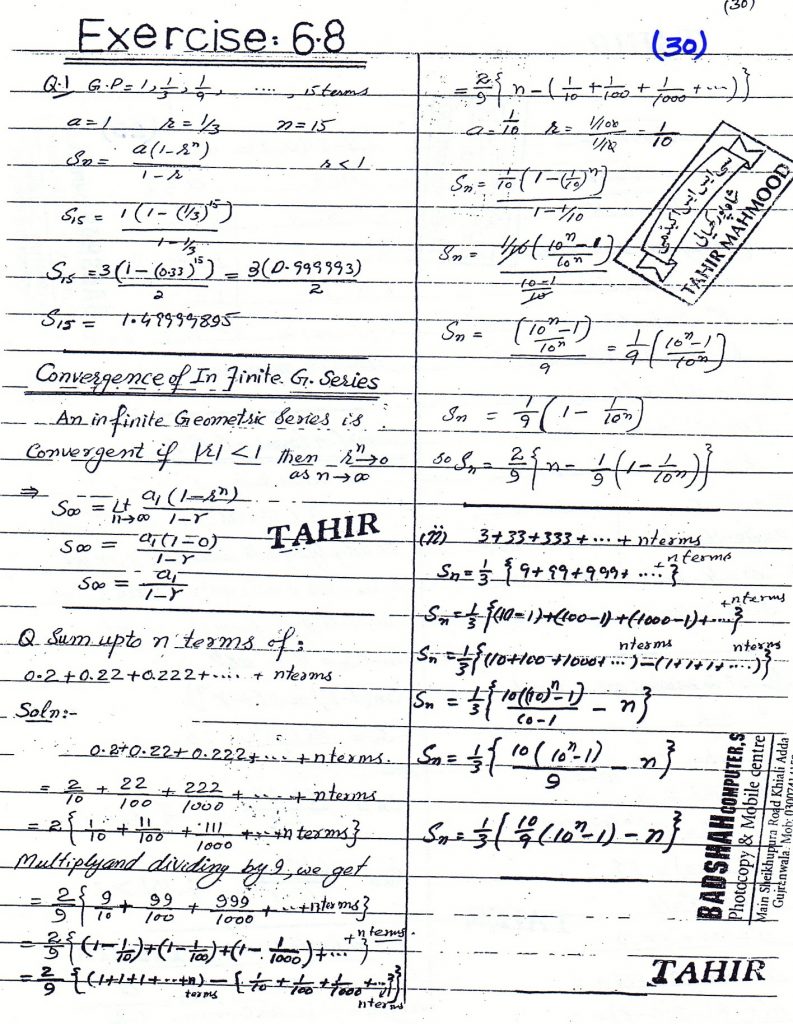 (30)
Exercise: 6.8
Q.1 G.P = 1, 1/3, 1/9, ...., 15 terms
a = 1 r = 1/3 n = 15
Sn = a(1-r^n)/1-r r < 1
S15 = 1(1-(1/3)^15)/1-1/3
S15 = 3(1-(0.33)^15)/2 = 3(0.999993)/2
S15 = 1.49999895
Convergence of In Finite G. Series
An infinite Geometric Series is
Convergent if |r| < 1 then r^n→0
as n→∞
⇒ S∞ = Lt n→∞ a1(1-r^n)/1-r
S∞ = a1(1-0)/1-r
S∞ = a1/1-r
TAHIR
Q Sum upto n terms of:
0.2+0.22+0.222+.... + n terms
Soln:-
0.2+0.22+0.222+...+n terms.
= 2/10 + 22/100 + 222/1000 + ... + n terms
= 2{1/10 + 11/100 + 111/1000 + ...+n terms}
Multiply and dividing by 9, we get
= 2/9 {9/10 + 99/100 + 999/1000 + ...+n terms}
= 2/9 {(1-1/10)+(1-1/100)+(1-1/1000)+... + n terms}
= 2/9 {(1+1+1+...+n) terms - {1/10 + 1/100 + 1/1000 + ...}} n terms
(30)
= 2/9 {n-(1/10 + 1/100 + 1/1000 + ...)}
a = 1/10 r = 1/100 / 1/10 = 1/10
Sn = 1/10(1-(1/10)^n)/1-1/10
Sn = 1/10(10^n-1/10^n)/10-1/10
Sn = (10^n-1/10^n)/9 = 1/9(10^n-1/10^n)
Sn = 1/9(1-1/10^n)
so Sn = 2/9{n-1/9(1-1/10^n)}
TAHIR MAHMOOD
(ii) 3+33+333+...+ n terms
Sn = 1/3 {9+99+999+.... + n terms}
Sn = 1/3{(10-1)+(100-1)+(1000-1)+... + n terms}
Sn = 1/3{(10+100+1000+... n terms)-(1+1+1+.... n terms)}
Sn = 1/3{10((10)^n-1)/10-1 - n}
Sn = 1/3{10(10^n-1)/9 - n}
Sn = 1/3{10/9(10^n-1)-n}
BADSHAH COMPUTER,S
Photocopy & Mobile centre
Main Sheikhupura Road Khiali Adda
Gujranwala. Mob:
TAHIR